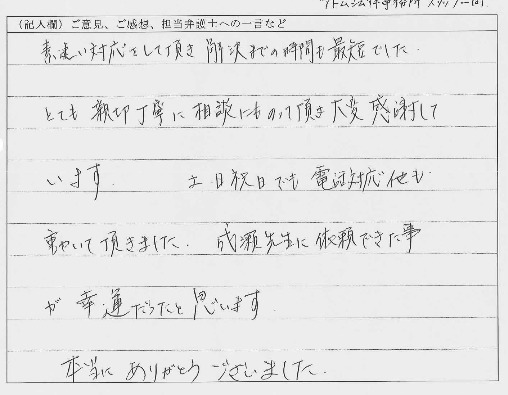 アトム法律事務所 スタッフ一同
（記入欄）ご意見、ご感想、担当弁護士への一言など
素速い対応をして頂き 解決までの時間も最短でした.
とても 親切丁寧に 相談にものって頂き 大変 感謝して
います. 土日祝日でも 電話対応他も
動いて頂きました. 成瀬先生に 依頼できた事
が 幸運だったと 思います
本当に ありがとう ございました.